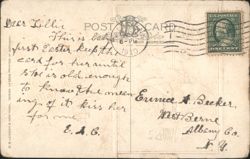 POST CARD
Dear Lillie
This is baby's
first Easter keep the
card for her until
she is old enough
to know the mean
ing of it kiss her
for me.
E. A. C.
Eunice A. Becker,
West Berne
Albany Co.
N. Y.